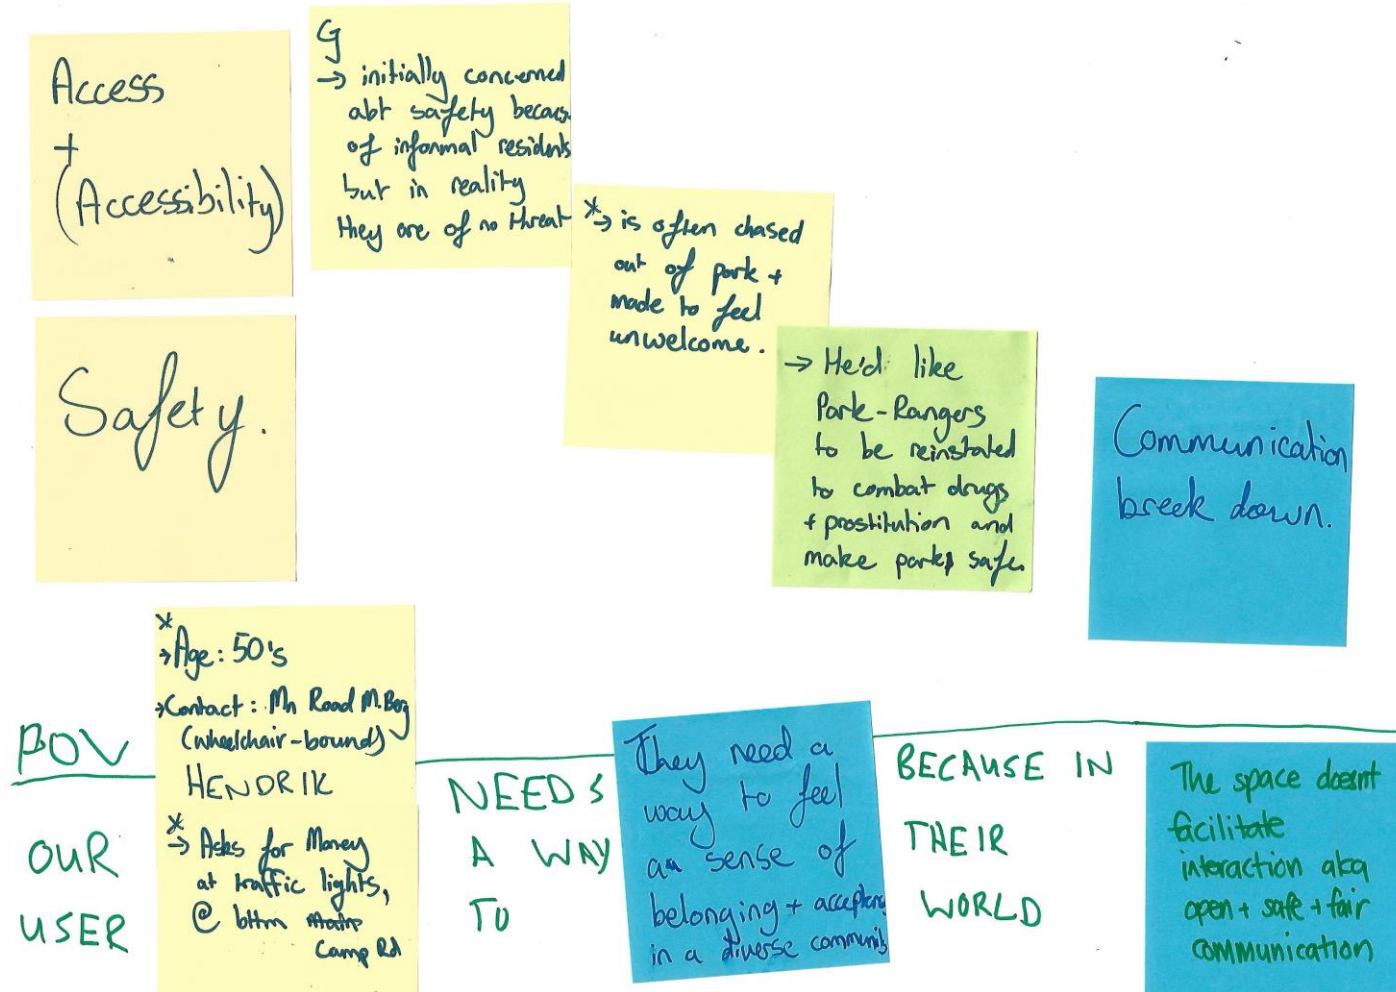 Access
+
(Accessibility)
G
→ initially concerned
abt safety becaus
of informal residents
but in reality
they are of no threat
*→ is often chased
out of park +
made to feel
unwelcome.
Safety.
→ He'd like
Park-Rangers
to be reinstated
to combat drugs
+ prostitution and
make park safe.
Communication
break down.
POV
OUR
USER
*
→Age: 50's
→Contact: Mn Road M.Berg
(wheelchair-bound)
HENDRIK
*
→ Asks for Money
at traffic lights,
@ bttm
Camp Rd
NEEDS
A WAY
TO
They need a
way to feel
a sense of
belonging + acceptance
in a diverse community
BECAUSE IN
THEIR
WORLD
The space doesnt
facilitate
interaction aka
open + safe + fair
communication